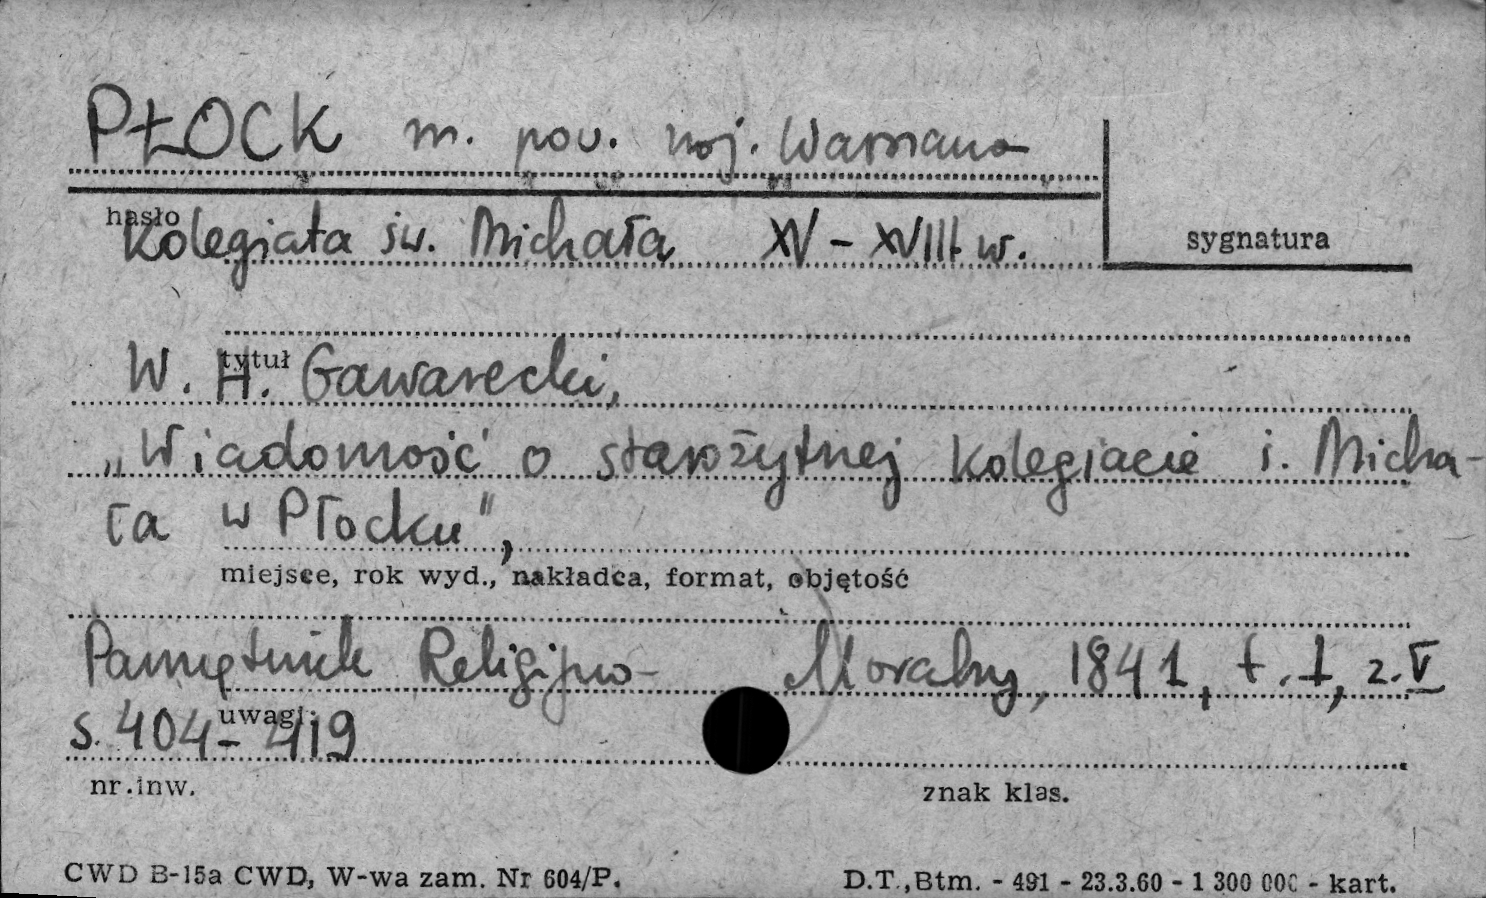 PŁOCK m. pow. woj. Warszawa
hasło
Kolegiata św. Michała XV - XVIII w.
sygnatura
tytuł
W. H. Gawarecki,
„Wiadomość o starożytnej Kolegiacie ś. Micha-
ła w Płocku",
miejsce, rok wyd., nakładca, format, objętość
Pamiętnik Religijno- Moralny, 1841, t. 1, z. V
uwagi
s. 404-419
nr.inw.
znak klas.
CWD B-15a CWD, W-wa zam. Nr 604/P.
D.T.,Btm. - 491 - 23.3.60 - 1 300 000 - kart.